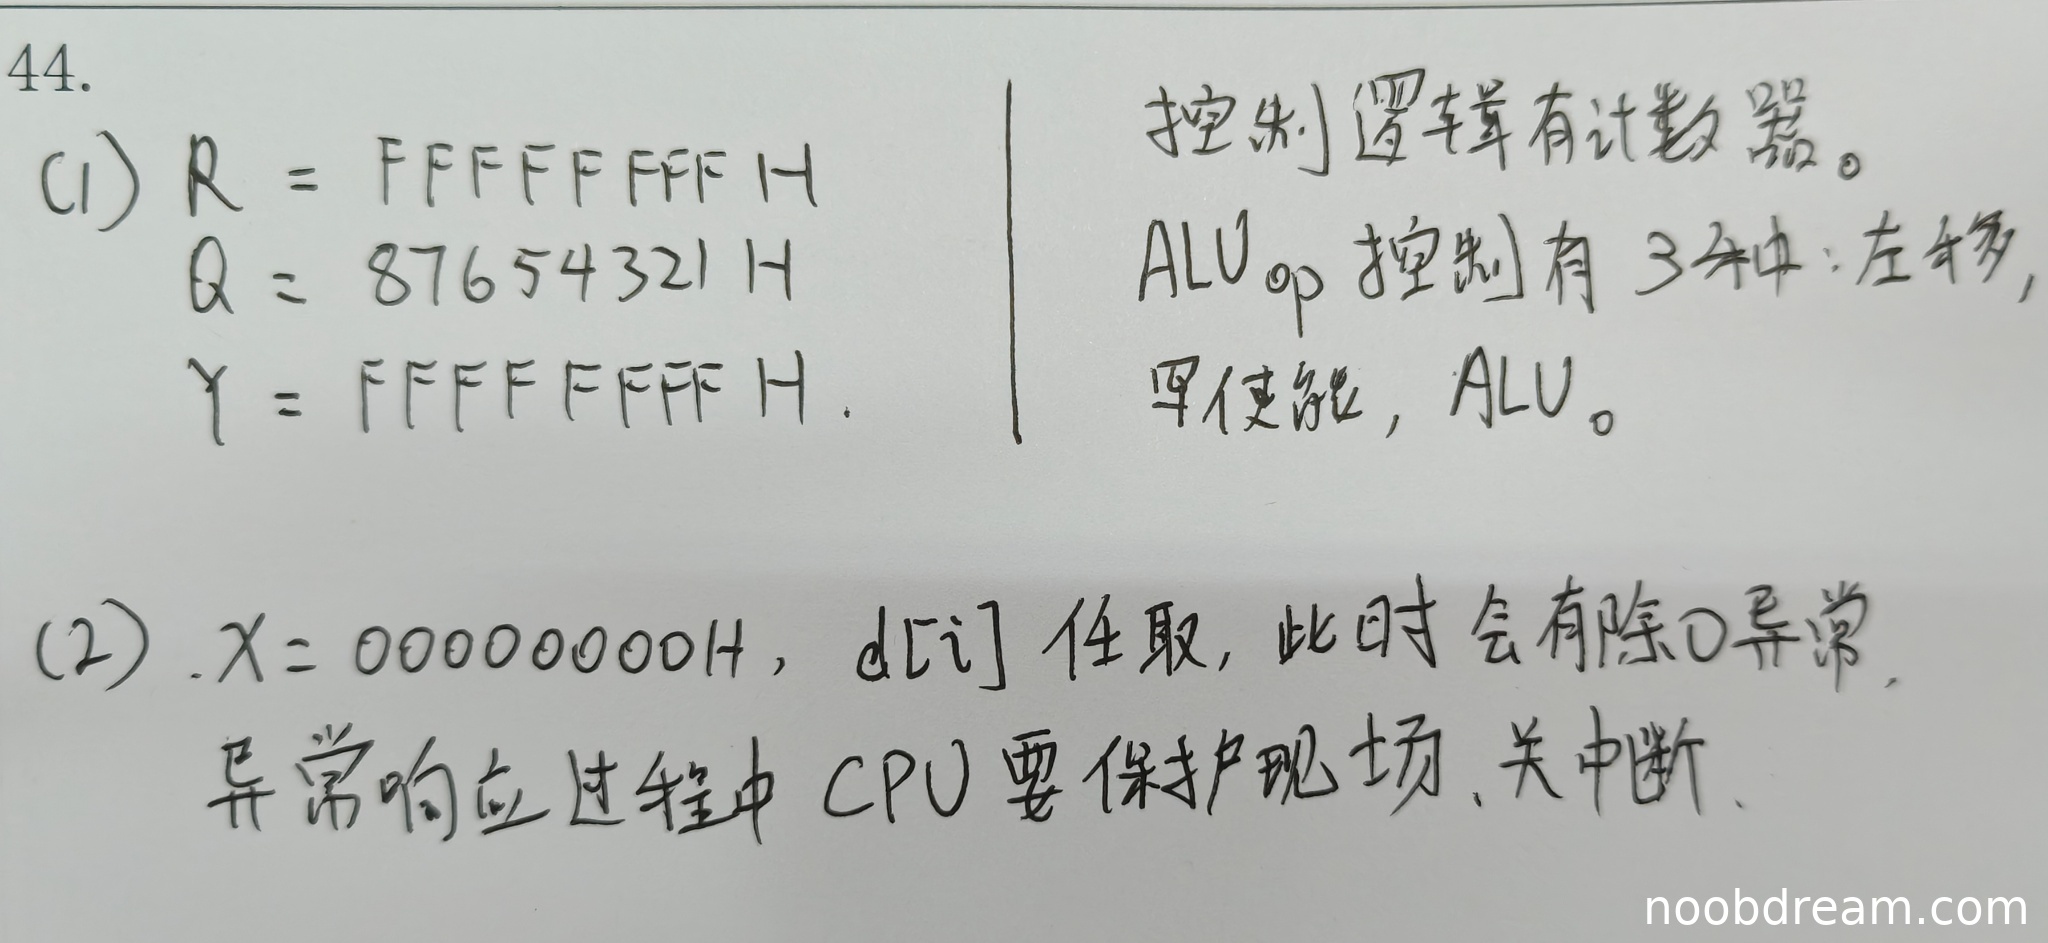 44.
(1) R = FFFFFFFFH
Q = 87654321H
Y = FFFFFFFFH.
控制逻辑有计数器。
ALUop 控制有3种:左移,
写使能, ALU。
(2). X = 00000000H, d[i] 任取, 此时会有除0异常.
异常响应过程中 CPU 要保护现场、关中断.
noobdream.com